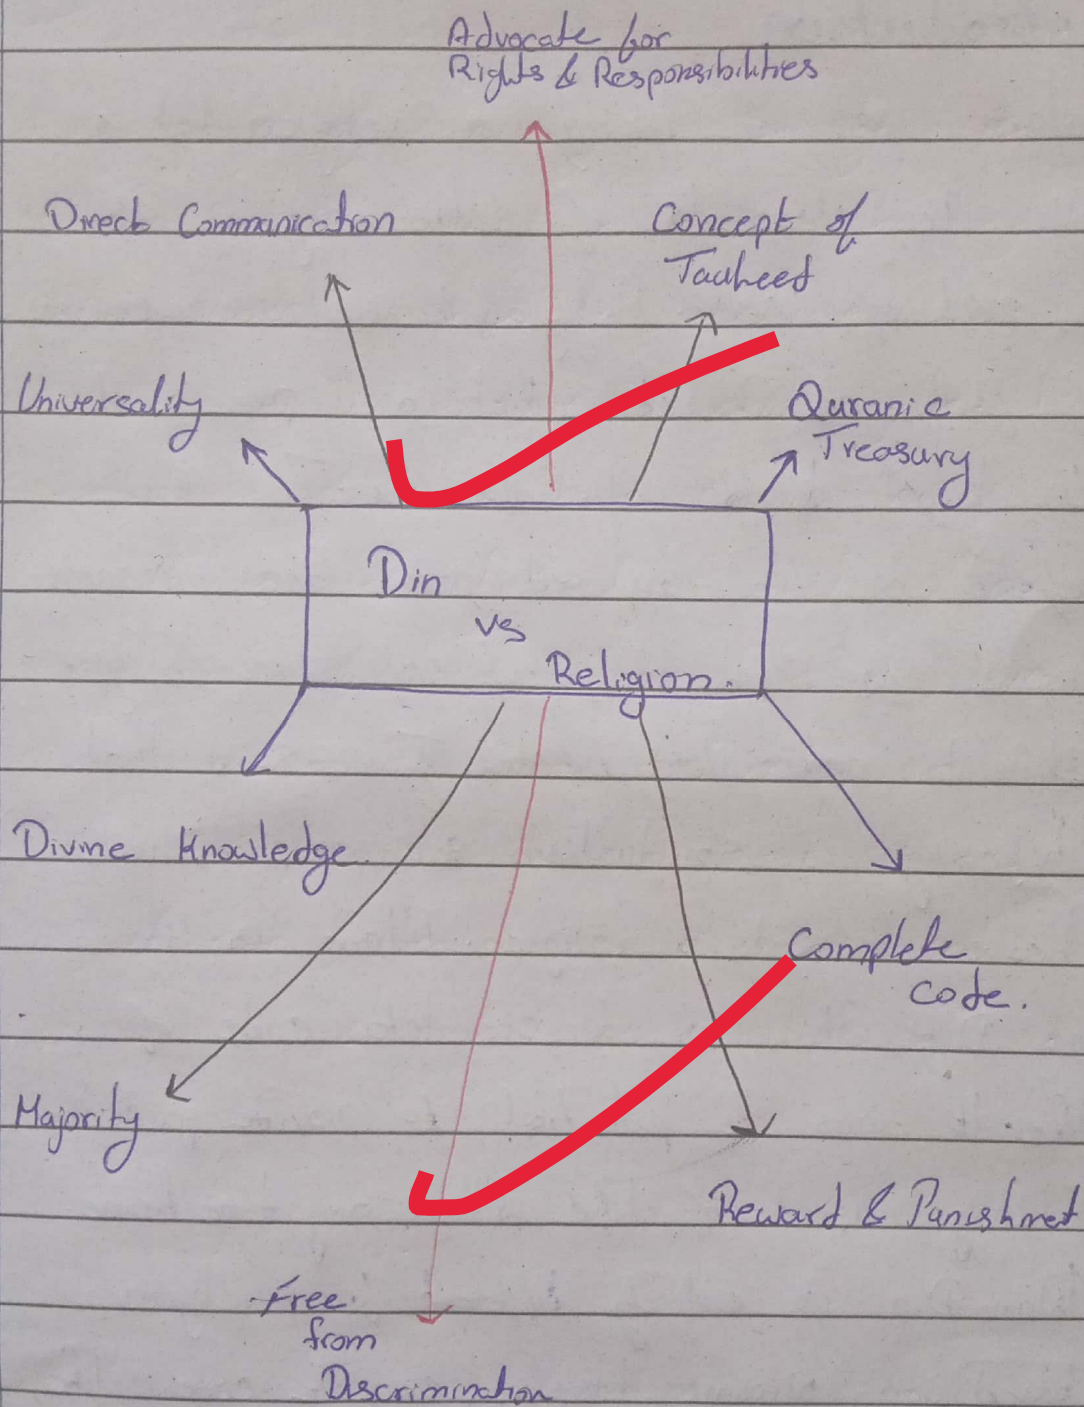 Advocate for
Rights & Responsibilities
Direct Communication
Concept of
Tauheed
Universality
Quranic
Treasury
Din
vs
Religion.
Divine Knowledge
Complete
code.
Majority
Reward & Punishmet
Free
from
Discrimination